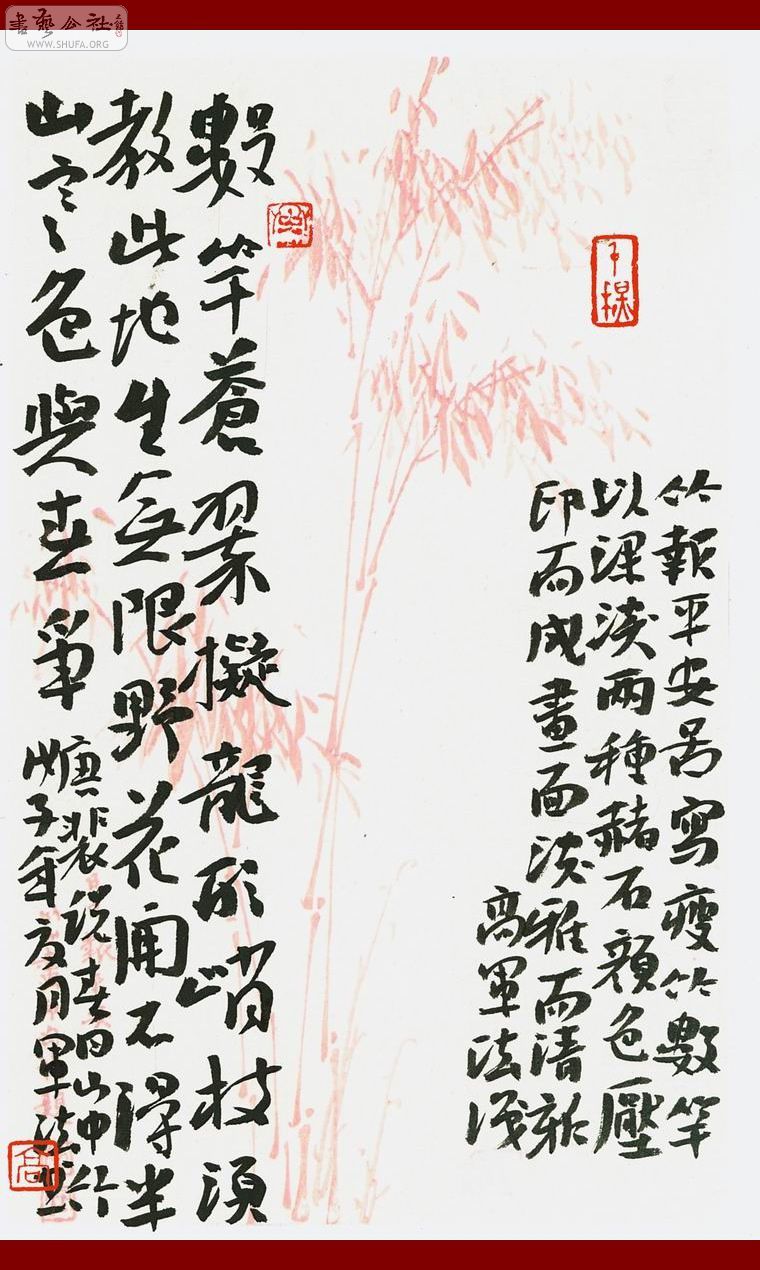 書藝公社
WWW.SHUFA.ORG
竹報平安寫瘦竹數竿
以深淡兩種赭石顏色壓
印而成畫面淡雅而清新
高軍法識
數竿蒼翠擬龍形峭拔須
教此地生無限野花開不得半
山寒色與春爭
唐裴说春日山中竹
戊子年夏月軍法